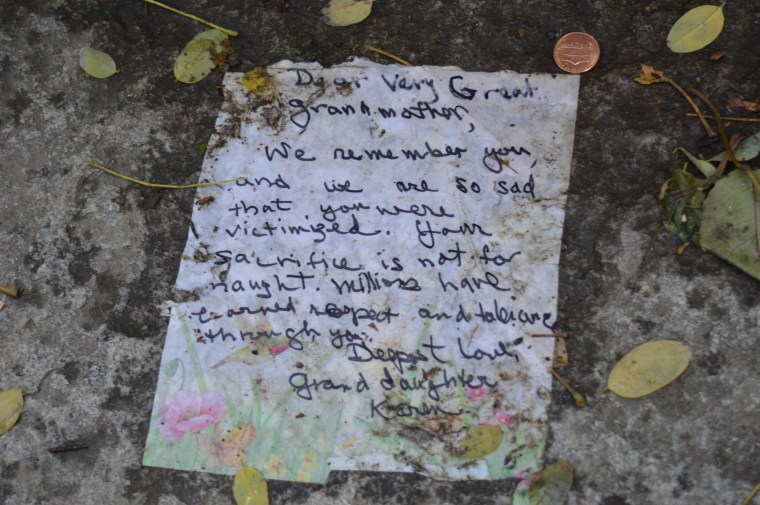 Dear Very Great
grandmother,
We remember you,
and we are so sad
that you were
victimized. Your
sacrifice is not for
naught. Millions have
learned respect and tolerance
through you.
Deepest Love,
Granddaughter
Karen